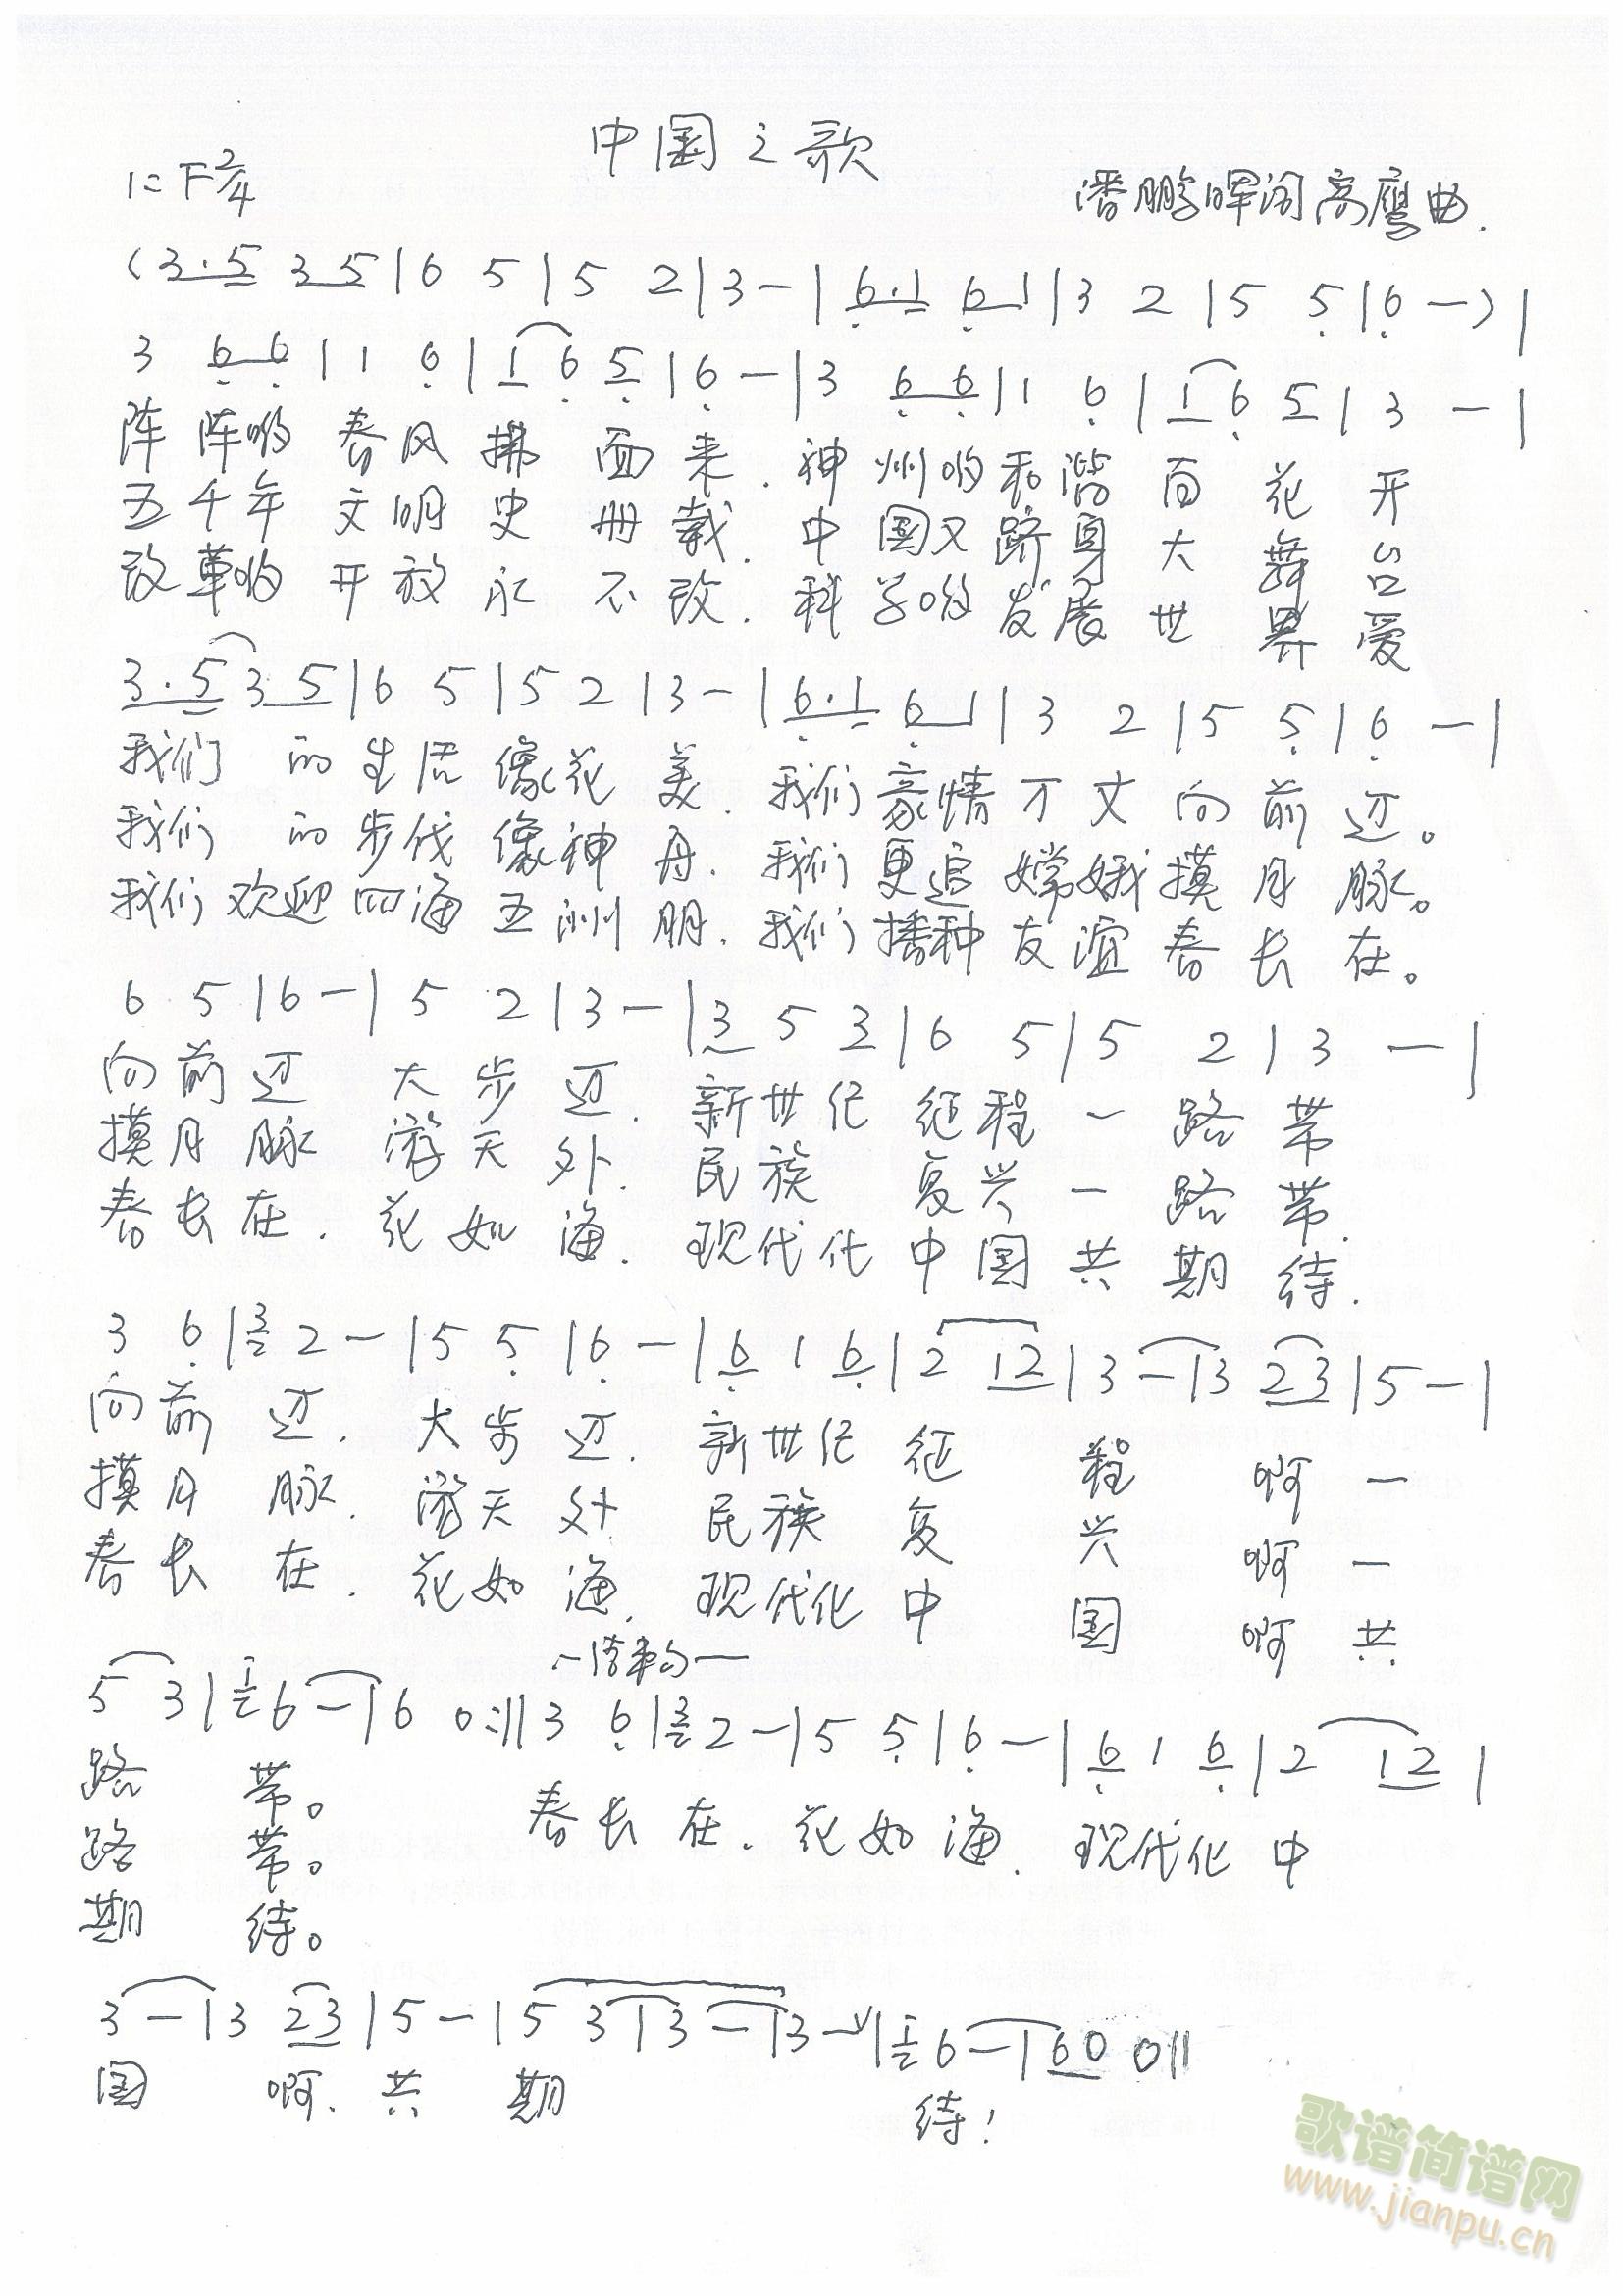 中国之歌
1=F 2/4
潘鹏晖词 高鹰曲.
(3.5 3 5 | 6 5 | 5 2 | 3 - | 6.1 6 1 | 3 2 | 5 5 | 6 -) |
3 6 6 | 1 6 | 1 6 5 | 6 - | 3 6 6 | 1 6 | 1 6 5 | 3 - |
阵阵哟春风拂面来.神州哟和谐百花开
五千年文明史册载.中国又跻身大舞台
改革哟开放永不改.科学哟发展世界爱
3.5 3 5 | 6 5 | 5 2 | 3 - | 6.1 6 1 | 3 2 | 5 5 | 6 - |
我们的生活像花美.我们豪情万丈向前迈。
我们的步伐像神舟.我们更追嫦娥摸月脉。
我们欢迎四海五洲朋.我们播种友谊春长在。
6 5 | 6 - | 5 2 | 3 - | 3 5 3 | 6 5 | 5 2 | 3 - |
向前迈 大步迈.新世纪征程一路带
摸月脉 游天外.民族复兴一路带.
春长在.花如海.现代化中国共期待.
3 6 | 3 2 - | 5 5 | 6 - | 6 1 6 | 2 1 2 | 3 - | 3 2 3 | 5 - |
向前迈.大步迈.新世纪征程啊一
摸月脉.游天外 民族复兴啊一
春长在.花如海.现代化中国啊共
-结束句-
5 3 | 1 6 - | 6 0 :|| 3 6 | 3 2 - | 5 5 | 6 - | 6 1 6 | 2 1 2 |
路带。 春长在.花如海.现代化中
路带。
期待。
3 - | 3 2 3 | 5 - | 5 3 | 3 - | 3 - V | 1 6 - | 6 0 0 ||
国 啊.共期 待!
歌谱简谱网
www.jianpu.cn